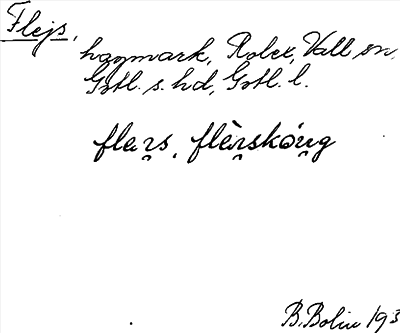 Flejs,
hagmark, Robex, Vall sn,
Gotl. s. hd, Gotl. l.
flaı̯s, flàı̯skóu̯g
B. Bolin 193